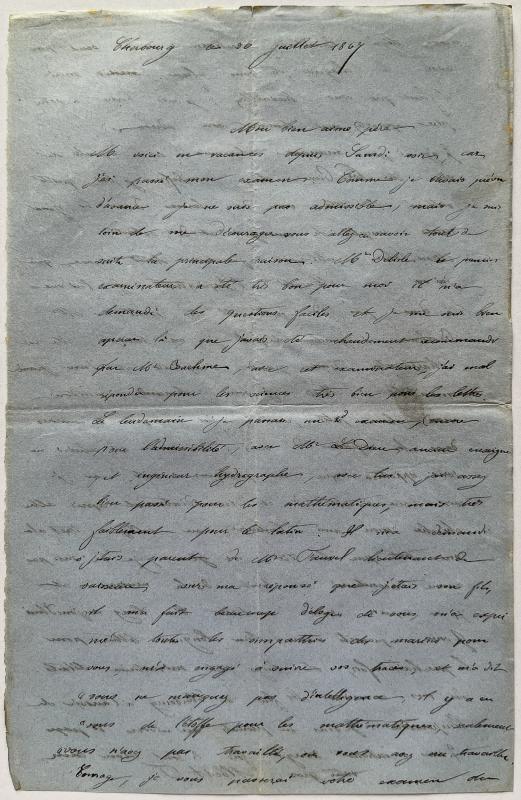 Cherbourg ce 26 juillet 1867
Mon bien aimé père
Me voici en vacances depuis Samedi soir, car
j'ai passé mon examen. Comme je l'avais prévu
d'avance je ne suis pas admissible, mais je suis
loin de me décourager vous allez savoir tout de
suite la principale raison. Mr Delisle le premier
examinateur a été très bon pour moi il m'a
demandé les questions faciles et je me suis bien
aperçu là que j'avais été chaudement recommandé
par Mr avec cet examinateur j'ai mal
répondu pour les sciences très bien pour les lettres
Le lendemain je passais un 2e examen
pour l'admissibilité, avec Mr Le Dieu ancien enseigne
et ingénieur hydrographe, avec lui j'ai assez
bien passé pour les mathématiques mais très
faiblement pour le latin. Il m'a demandé
si j'étais parent de Mr lieutenant de
vaisseau, sur ma réponse que j'étais son fils,
il m'a fait beaucoup d'éloges de vous m'a expri
mé toutes les sympathies des marins pour
vous m'a engagé à suivre vos traces et m'a dit
"vous ne manquez pas d'intelligence, il y a en
"vous de l'étoffe pour les mathématiques, seulement
"vous n'avez pas travaillé, ou vous avez mal travaillé
je vous passerai votre examen